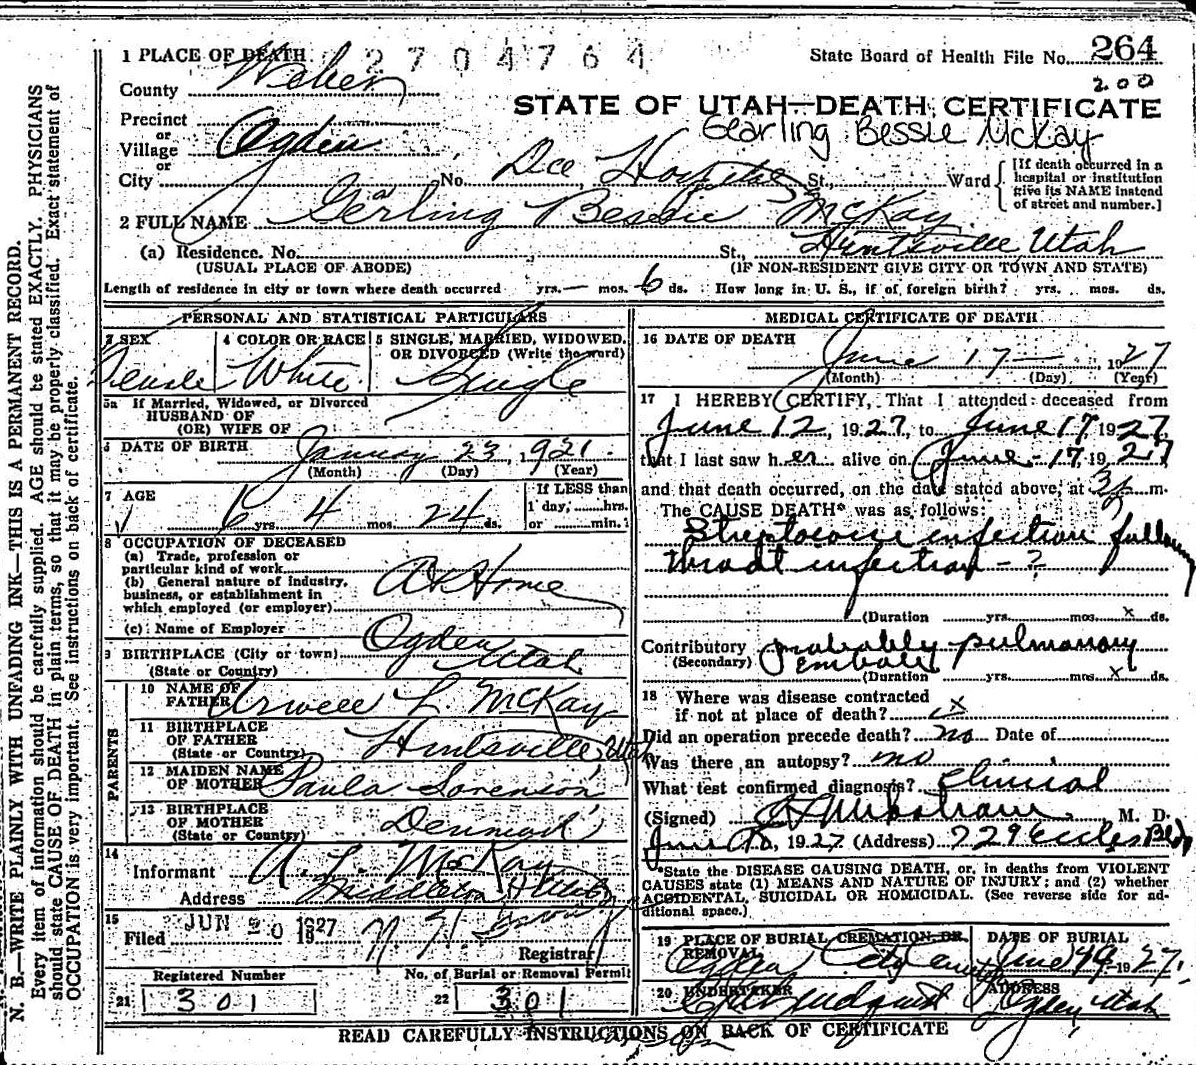 1 PLACE OF DEATH 2704764 State Board of Health File No. 264
200
County Weber
STATE OF UTAH—DEATH CERTIFICATE
Precinct
or
Village Ogden
or
Gearling Bessie McKay
City No. Dee Hospital St., Ward
[If death occurred in a hospital or institution give its NAME instead of street and number.]
2 FULL NAME Gerling Bessie McKay
(a) Residence. No. St., Huntsville, Utah
(USUAL PLACE OF ABODE) (IF NON-RESIDENT GIVE CITY OR TOWN AND STATE)
Length of residence in city or town where death occurred yrs. — mos. 6 ds. How long in U. S., if of foreign birth? yrs. mos. ds.
PERSONAL AND STATISTICAL PARTICULARS
3 SEX Female
4 COLOR OR RACE White
5 SINGLE, MARRIED, WIDOWED, OR DIVORCED (Write the word) Single
5a If Married, Widowed, or Divorced
HUSBAND OF
(OR) WIFE OF
6 DATE OF BIRTH January 23, 1921
(Month) (Day) (Year)
7 AGE 6 yrs. 4 mos. 24 ds.
If LESS than
1 day, hrs.
or min.
8 OCCUPATION OF DECEASED
(a) Trade, profession or
particular kind of work
(b) General nature of industry,
business, or establishment in
which employed (or employer) At Home
(c) Name of Employer
9 BIRTHPLACE (City or town) Ogden
(State or Country) Utah
PARENTS
10 NAME OF
FATHER L. McKay
11 BIRTHPLACE
OF FATHER
(State or Country) Huntsville Utah
12 MAIDEN NAME
OF MOTHER Paula Sorenson
13 BIRTHPLACE
OF MOTHER
(State or Country) Denmark
14
Informant A. L. McKay
Address
15
Filed JUN 20 1927
Registrar
Registered Number
21 301
No. of Burial or Removal Permit
22 301
MEDICAL CERTIFICATE OF DEATH
16 DATE OF DEATH
June 17 — 1927
(Month) (Day) (Year)
17 I HEREBY CERTIFY, That I attended deceased from
June 12, 1927, to June 17 1927,
that I last saw her alive on June 17 1927
and that death occurred, on the date stated above, at m.
The CAUSE DEATH* was as follows:
infection following
throat infection — ?
(Duration yrs. mos. x ds.
Contributory probably pulmonary
(Secondary)
(Duration yrs. mos. x ds.
18 Where was disease contracted
if not at place of death? x
Did an operation precede death? no Date of
Was there an autopsy? no
What test confirmed diagnosis? Clinical
(Signed) M. D.
June , 1927 (Address) 729 Eccles Bldg
*State the DISEASE CAUSING DEATH, or, in deaths from VIOLENT
CAUSES state (1) MEANS AND NATURE OF INJURY; and (2) whether
ACCIDENTAL, SUICIDAL OR HOMICIDAL. (See reverse side for ad-
ditional space.)
19 PLACE OF BURIAL CREMATION OR
REMOVAL
Ogden City
DATE OF BURIAL
June 19 1927
20 UNDERTAKER
ADDRESS
Ogden, Utah
READ CAREFULLY INSTRUCTIONS ON BACK OF CERTIFICATE
N. B.—WRITE PLAINLY WITH UNFADING INK—THIS IS A PERMANENT RECORD.
Every item of information should be carefully supplied. AGE should be stated EXACTLY. PHYSICIANS
should state CAUSE OF DEATH in plain terms, so that it may be properly classified. Exact statement of
OCCUPATION is very important. See instructions on back of certificate.